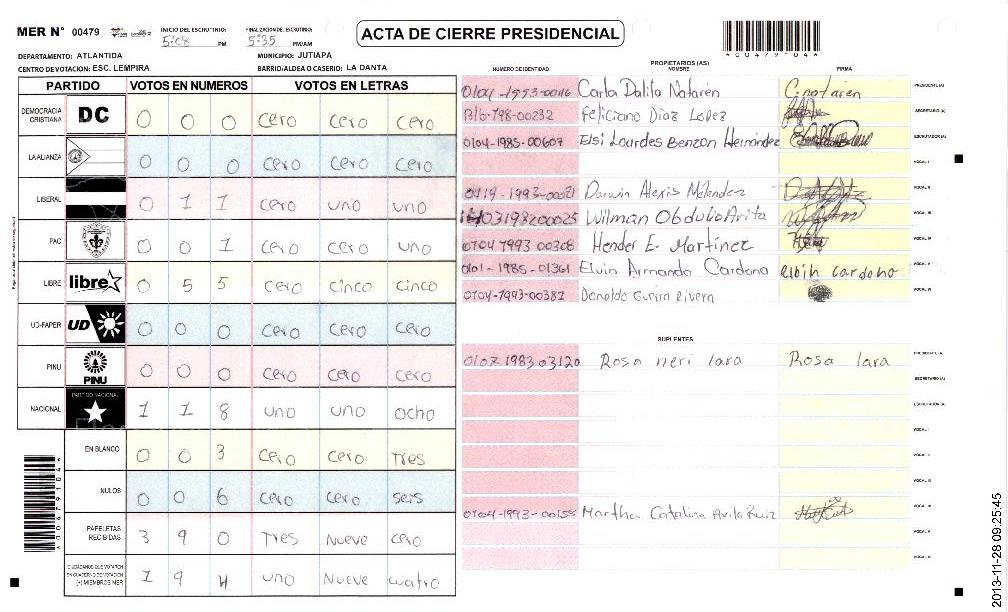 MER Nº 00479 INICIO DEL ESCRUTINIO: 5:08 PM FINALIZACION DEL ESCRUTINIO: 5:35 PM/AM
ACTA DE CIERRE PRESIDENCIAL
*00479104*
DEPARTAMENTO: ATLANTIDA MUNICIPIO: JUTIAPA
CENTRO DE VOTACION: ESC. LEMPIRA BARRIO/ALDEA O CASERIO: LA DANTA
PARTIDO VOTOS EN NUMEROS VOTOS EN LETRAS
DEMOCRACIA CRISTIANA DC 0 0 0 cero cero cero
LA ALIANZA 0 0 0 cero cero cero
LIBERAL 0 1 1 cero uno uno
PAC 0 0 1 cero cero uno
LIBRE libre 0 5 5 cero cinco cinco
UD-FAPER UD 0 0 0 cero cero cero
PINU PINU 0 0 0 cero cero cero
NACIONAL PARTIDO NACIONAL 1 1 8 uno uno ocho
EN BLANCO 0 0 3 cero cero tres
NULOS 0 0 6 cero cero seis
PAPELETAS RECIBIDAS 3 9 0 Tres Nueve cero
CIUDADANOS QUE VOTARON EN CUADERNO DE VOTACION (+) MIEMBROS MER 1 9 4 uno Nueve cuatro
PROPIETARIOS (AS)
NUMERO DE IDENTIDAD NOMBRE FIRMA
0104-1993-0046 Carla Dalila Notarén C.notaren PRESIDENTE (A)
Feliciano Diaz Lopez SECRETARIO (A)
0104-1985-00607 Elsi Lourdes Benzon Hernández ESCRUTADOR (A)
VOCAL I
0419-1993-00021 Darwin Alexis Melendez VOCAL II
Wilman Obdulio Arita VOCAL III
0704 1993 00308 Hender E. Martinez VOCAL IV
0101-1985-01361 Elvin Armando Cardona elbin cardona VOCAL V
0704-1993-00382 Denaldo Gueira Rivera VOCAL VI
SUPLENTES
0107 1983 03120 Rosa neri lara Rosa lara PRESIDENTE (A)
SECRETARIO (A)
ESCRUTADOR (A)
VOCAL I
VOCAL II
VOCAL III
0704-1993-00155 Martha Catalina Avila Ruiz VOCAL IV
VOCAL V
VOCAL VI
*00479104*
2013-11-28 09:25:45